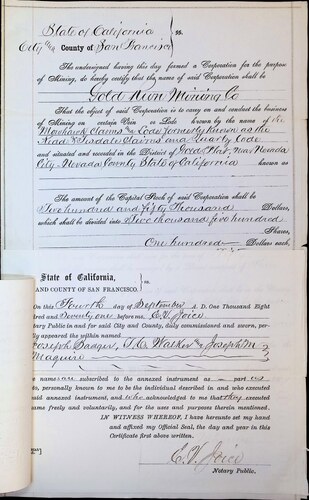 State of California } ss.
City and County of San Francisco
The undersigned having this day formed a Corporation for the purpose
of Mining, do hereby certify that the name of said Corporation shall be
Gold Run Mining Co
That the object of said Corporation is to carry on and conduct the business
of Mining on certain Vein or Lode known by the name of the
Mowhawk Claims & Lode formerly known as the
Read & Tisdale Claims and Quartz Lode
and situated and recorded in the District of Good Flat, near Nevada
City, Nevada County State of California known as
The amount of the Capital Stock of said Corporation shall be
Five hundred and fifty Thousand Dollars,
which shall be divided into Five thousand five hundred
Shares,
One hundred Dollars each,
State of California, } ss.
AND COUNTY OF SAN FRANCISCO.
On this Fourth day of September A. D. One Thousand Eight
dred and Seventy one before me, C. V. Joice
Notary Public in and for said City and County, duly commissioned and sworn, per-
ally appeared the within named
Joseph M
Maguire
names are subscribed to the annexed instrument as part ies
to, personally known to me to be the individual described in and who executed
said annexed instrument, and who acknowledged to me that they executed
same freely and voluntarily, and for the uses and purposes therein mentioned.
IN WITNESS WHEREOF, I have hereunto set my hand
and affixed my Official Seal, the day and year in this
Certificate first above written.
C. V. Joice
Notary Public.